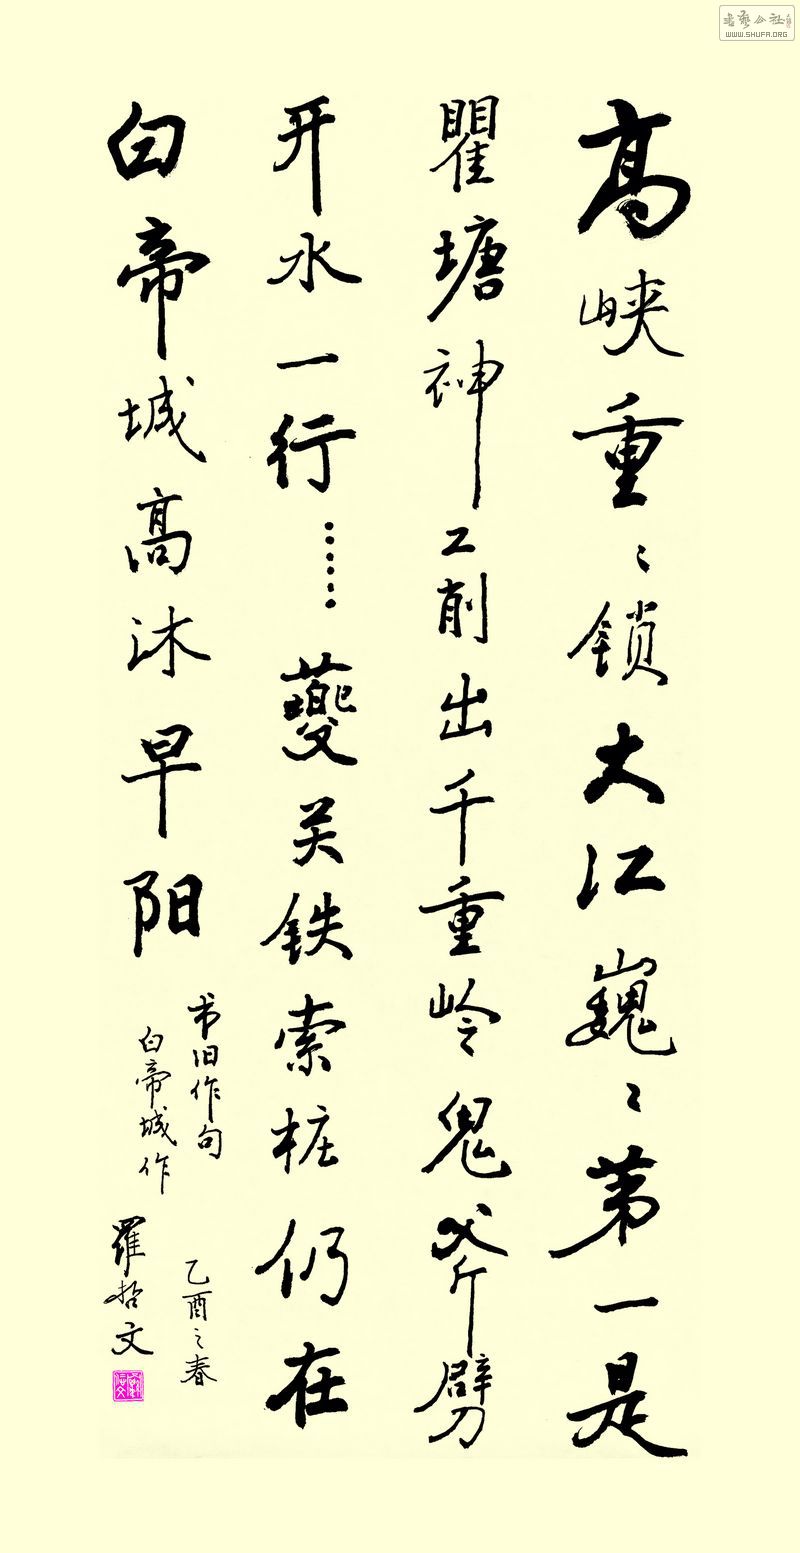 高峡重〻锁大江巍〻第一是
瞿塘神工削出千重岭鬼斧劈
开水一行……夔关铁索桩仍在
白帝城高沐早阳
书旧作句
白帝城作
乙酉之春
羅哲文
WWW.SHUFA.ORG